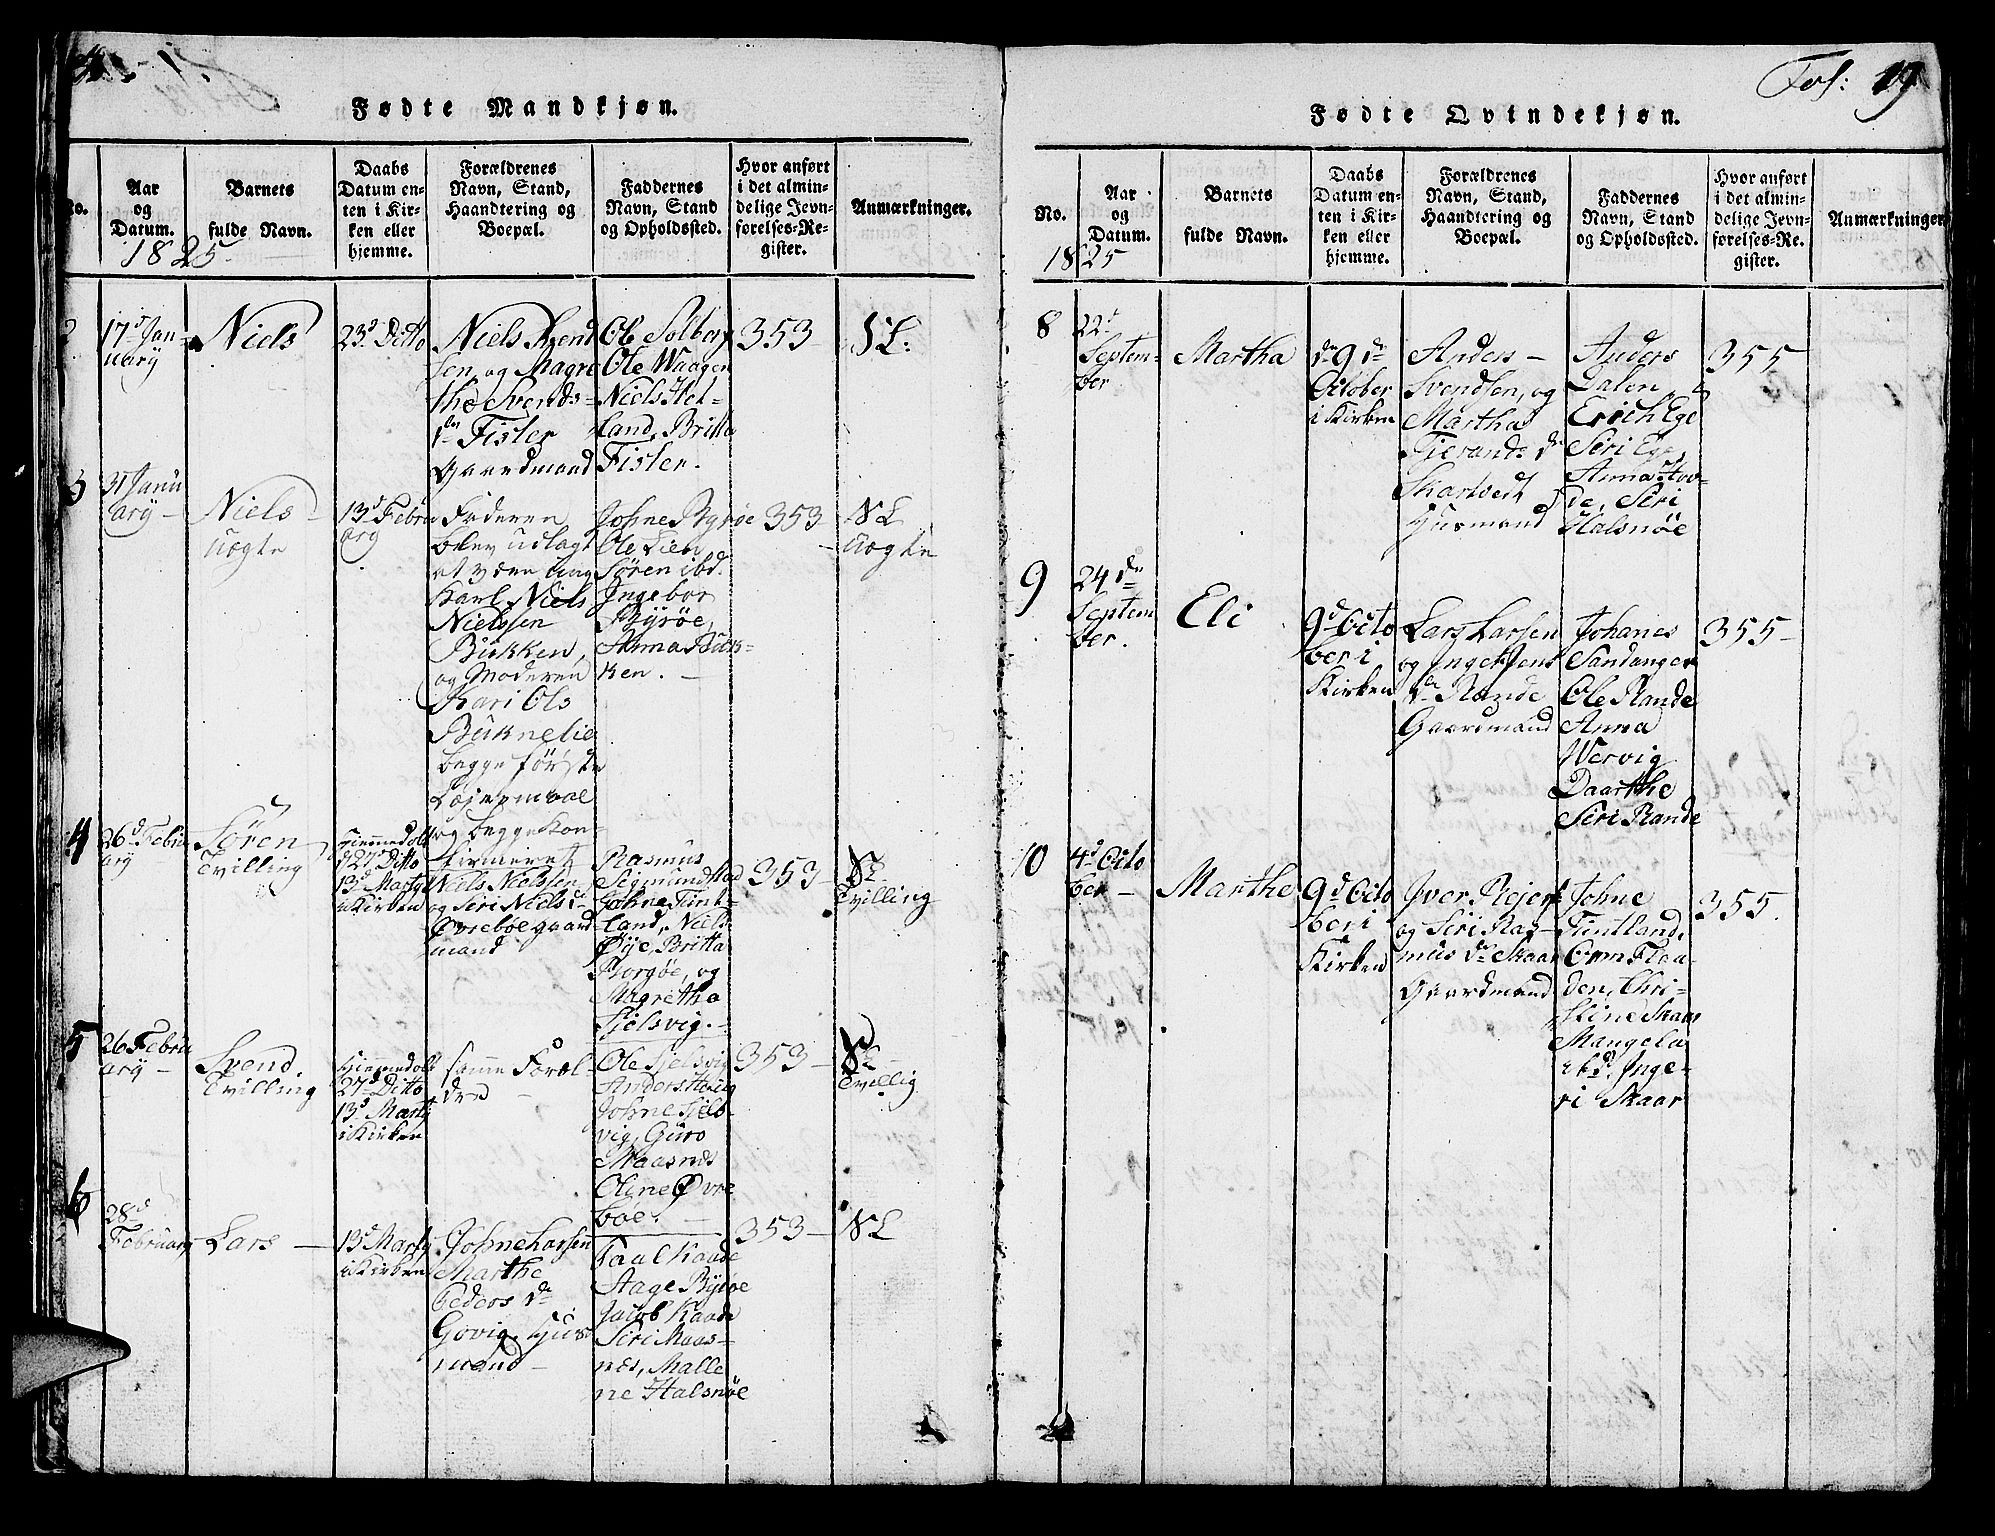 Fødte Mandkjøn.
No.
Aar
og
Datum.
1825.
Barnets
fulde Navn.
Daabs
Datum en-
ten i Kir-
ken eller
hjemme.
Forældrenes
Navn, Stand,
Haandtering og
Boepæl.
Faddernes
Navn, Stand
og Opholdssted.
Hvor anført
i det almin-
delige Jevn-
førelses-Re-
gister.
Anmærkninger.
17d Jan-
uary
Niels
23d Ditto
Niels Svend
sen, og Magre
the Svends-
dr Fister
Gaardmand
Ole Solberg
Ole Waagen
Niels Hel-
land, Britta
Fister.
353
NL.
3
31 Janu
ary
Niels
uægte
13d Febru
ary
Faderen
blev udlagt
at være ung
Karl Niels
Nielssen
Bukken,
og Moderen
Kari Ols
Buknelie
begge første
Lejermaal
og begge Kon-
firmeret
Johne Byrøe
Ole Lien
Søren ibd.
Ingebor
Byrøe,
Anna Buk-
ken.
353
NL
uægte
4
26d Febru
ary
Søren
Tvilling
Hiemmedøbt
d 27d Ditto
13d Marty
i Kirken
Niels Nielssen
og Siri Niels d
Øvrebøe gaard
mand
Rasmus
Sigmundstad
Johne Tunt-
land, Niels
Øye, Britta
Bjorgøe, og
Magretha
Sjelsvig.
353
NL
Tvilling
5
26 Febru
ary
Svend.
Tvilling
Hiemmedøbt
27d Ditto
13d Marty
i Kirken
samme Foræl
dre
Ole Sjelsvig
Anders Haug
Johne Siels-
vig, Guro
Maasnæs
Oline Øvre
boe.
353
NL
Tvillig
6
28d
February
Lars
13d Marty
i Kirken
Johne Larsen
Marthe
Peders dr
Govig, Hus
mand
Paal Kaade
Aage Byrøe
Jacob Kaade
Siri Maas-
næs, Malle
ne Halsnøe
353
NL
Fol: 19
Fødte Qvindekjøn.
No.
Aar
og
Datum.
1825
Barnets
fulde Navn.
Daabs
Datum en-
ten i Kir-
ken eller
hjemme.
Forældrenes
Navn, Stand,
Haandtering og
Boepæl.
Faddernes
Navn, Stand
og Opholdssted.
Hvor anført
i det almin-
delige Jevn-
førelses-Re-
gister.
Anmærkninger
8
22d
Septem-
ber
Martha
dn 9 dn
October
i Kirken
Anders
Svendsen, og
Martha
Tjerands dr
Skartvedt
Husmand
Anders
Dalen
Erich Ege
Siri Ege
Anna
de, Siri
Halsnøe
355
9
24 dn
Septem
ber.
Eli
9d Octo
ber i
Kirken
Lars Larsen
og Inge Jens
dr Rande
Gaardmand
Johanes
Sandanger
Ole Rande
Anna
Wervig
Daarthe
Siri Rande
355
10
4d Octo
ber
Marthe
9d Octo
ber i
Kirken
Iver Rejers
og Siri Ras-
mus dr Skaar
Gaardmand
Johne
Tuntland,
Orm Floa-
den, Chri-
stine Skaar
Mangela
ibd. Inge-
ri Skaar
355.